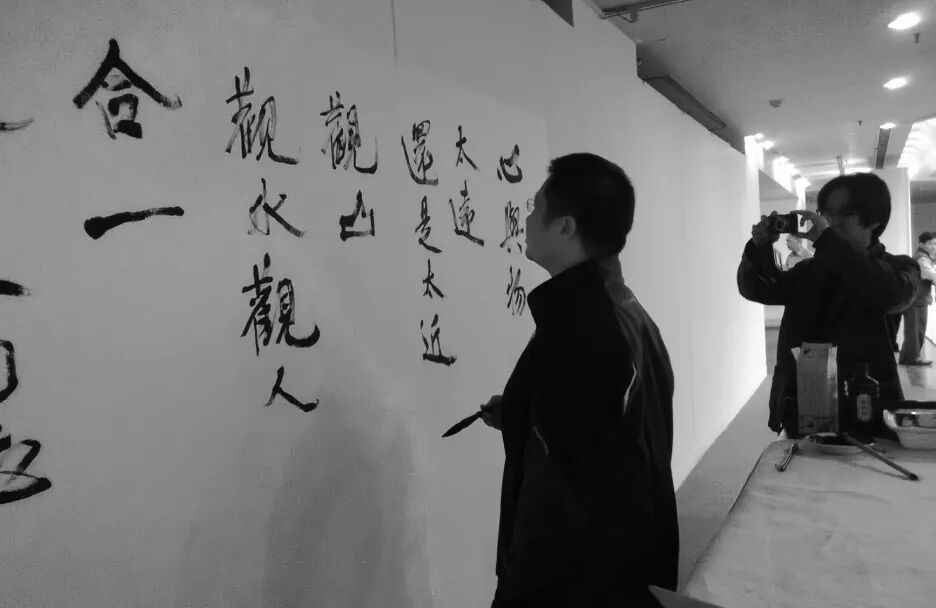 心與物
太遠
還是太近
觀山
觀水觀人
合一